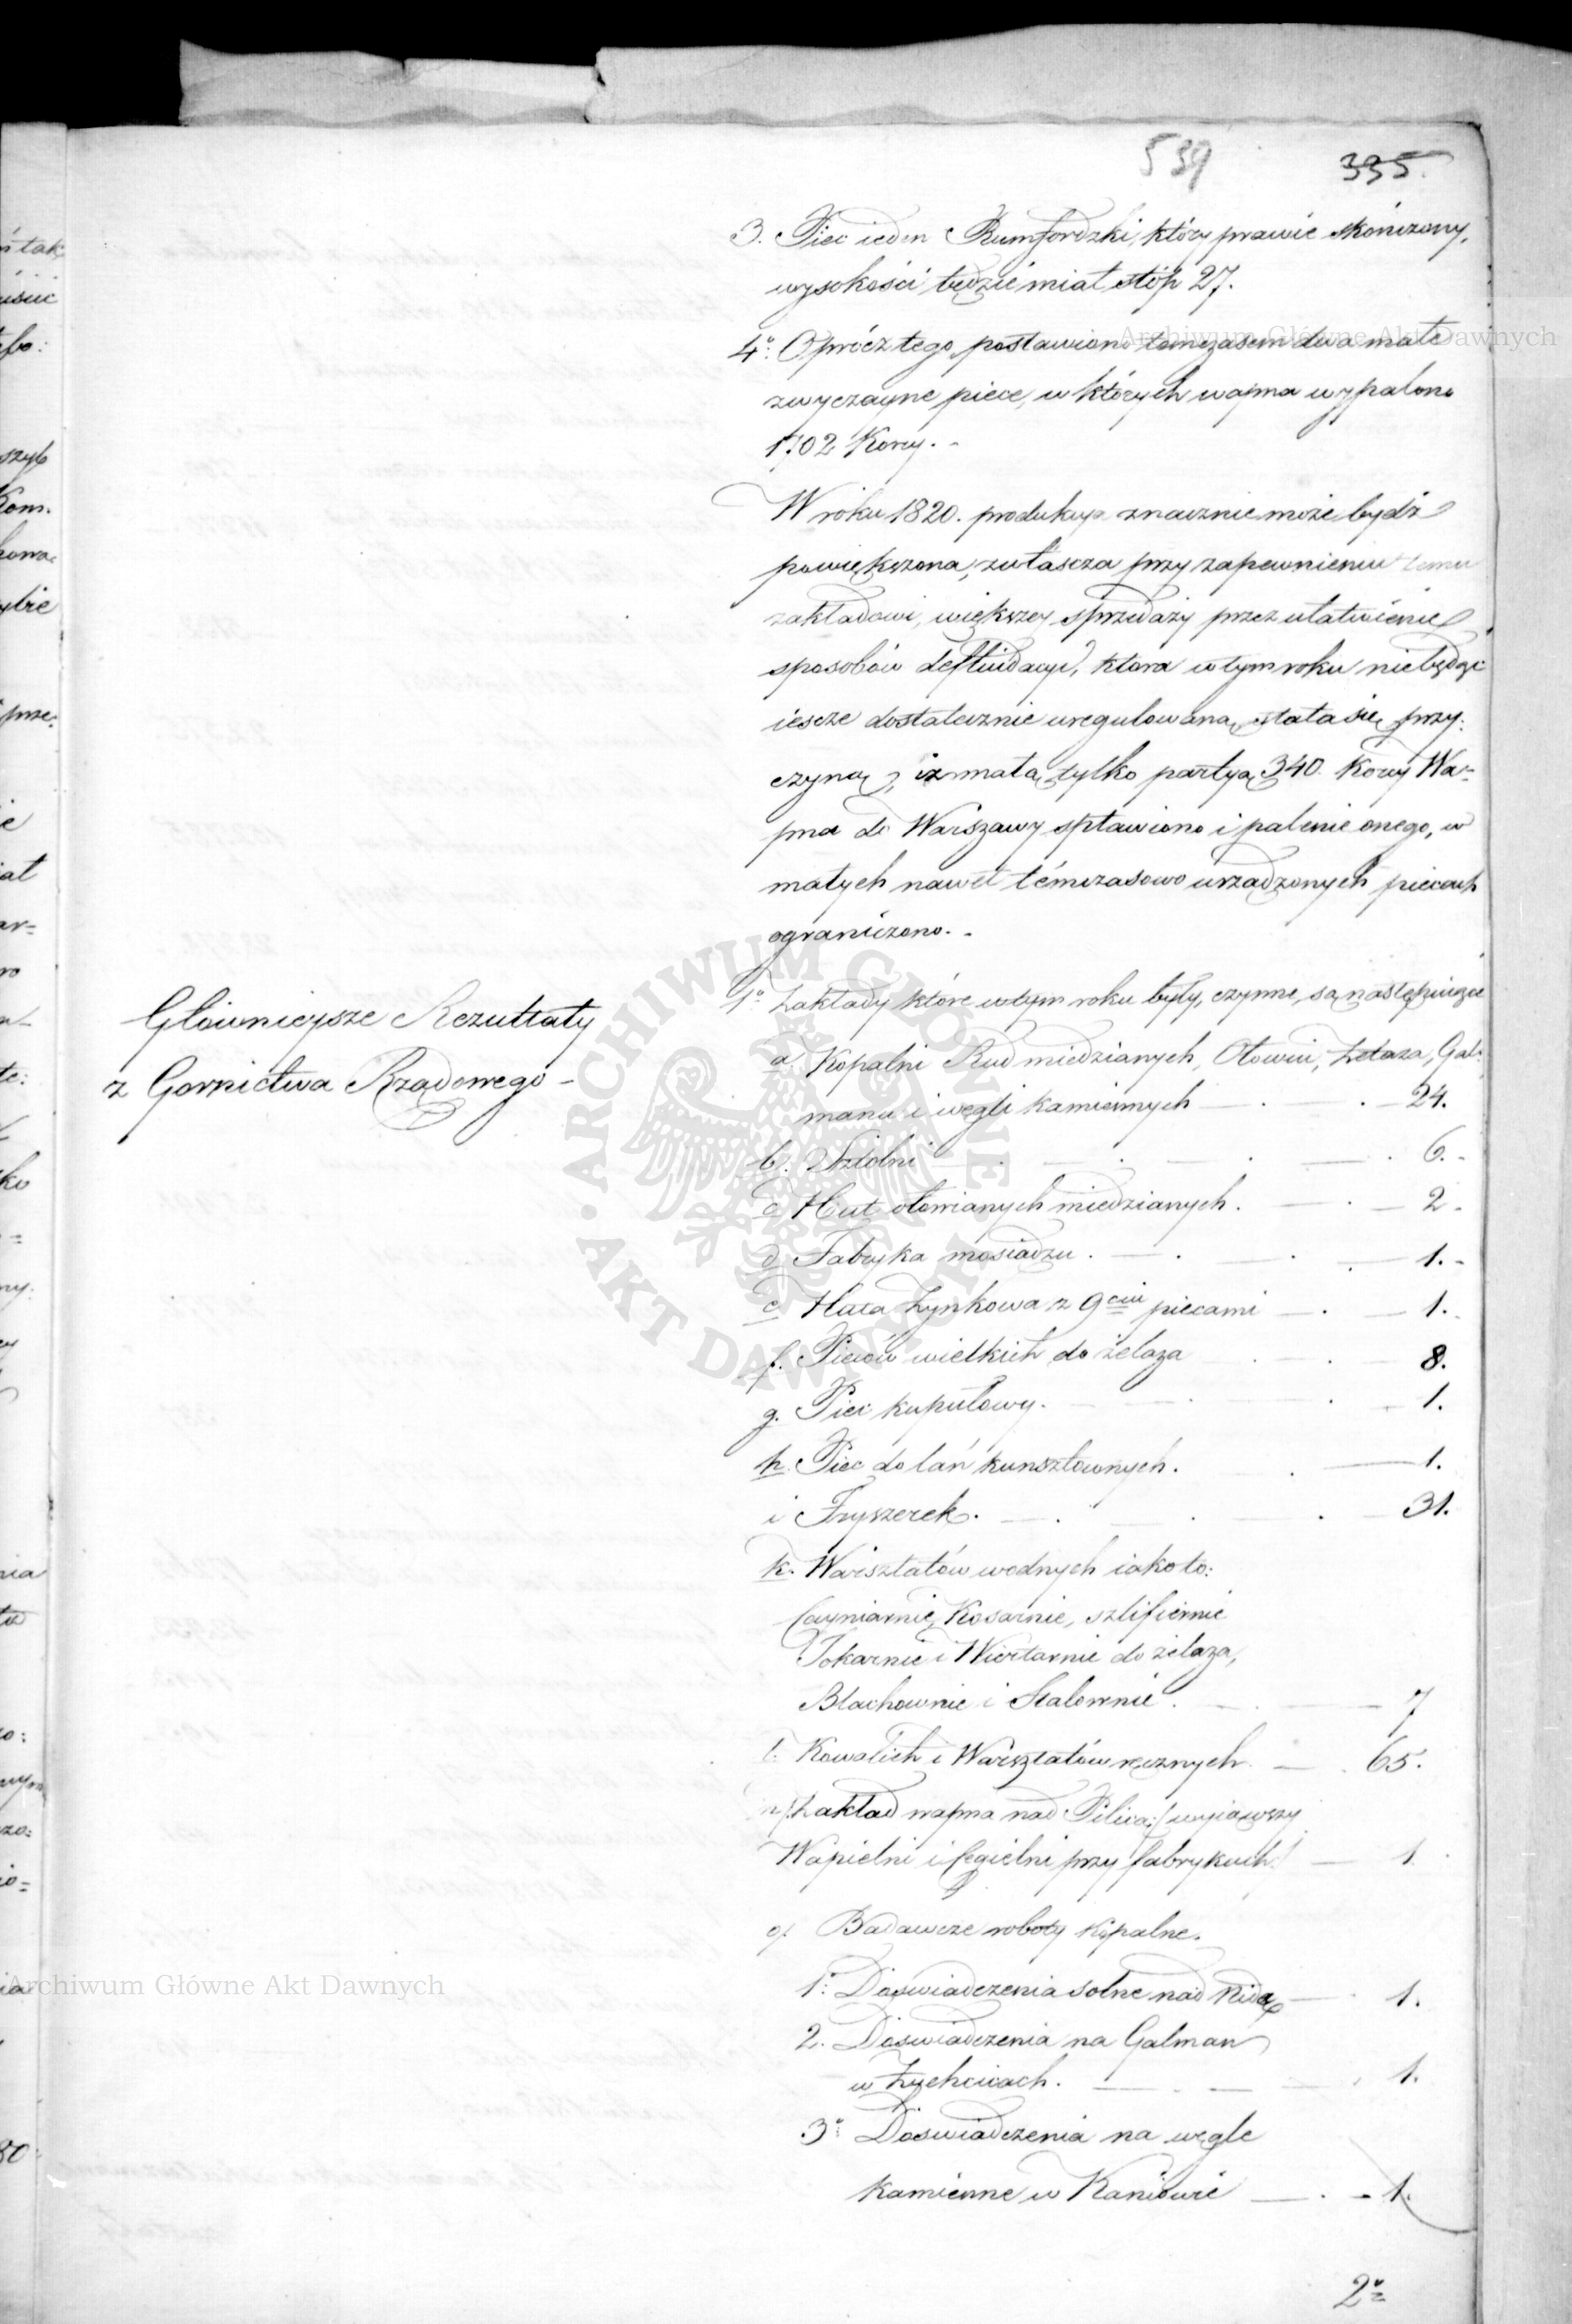 539 335.
3. Piec ieden Rumfordzki, który prawie skończony,
wysokości będzie miał stóp 27.
4o: Oprócz tego postawiono tomczasem dwa małe
zwyczayne piece, w których wapna wypalono
1702 Korcy. -
W roku 1820. produkcya znacznie może bydź
powiększona, zwłascza przy zapewnieniu temu
zakładowi, większey sprzedaży przez ułatwienie
sposobów defluidacyi, która w tym roku niebędąc
iescze dostatecznie uregulowaną, stała się przy:
czyną, iż małą tylko partyą 340. Korcy Wa-
pna do Warszawy spławiono i palenie onego, w
małych nawet témczasowo urządzonych piecach
ograniczono. -
Główniejsze Rezultaty
z Gornictwa Rządowego -
1o Zakłady które w tym roku były, czynne, są następuiące
a Kopalni Rud miedzianych, Ołowiu, Żelaza, Gal:
manu i węgli kamiennych — . — . — 24.
b. Sztolni — . — . — . — . 6. -
c Hut ołowianych miedzianych. — . — 2 -
d Fabryka mosiądzu . — . — . — 1. -
e Huta Zynkowa z 9ciu piecami — . — 1. -
f. Pieców wielkich do żelaza . — . — 8.
g. Piec kupułowy. — . — . — 1.
h. Piec do lań kunsztownych. . — 1.
i Fryszerek. — . — . — . — 31.
k. Warsztatów wodnych iako to:
Cayniarnie, Kosarnie, szlifiernie
Tokarnie i Wiertarnie do żelaza,
Blachownie i Stalownie . — . — 7
l. Kowalich i Warsztatów ręcznych — . 65.
Zakład wapna nad Pilicą /: wyiąwszy
Wapielni i Cegielni przy fabrykach :/ — 1.
Badawcze roboty Kopalne.
1o: Doswiadczenia solne nad Nidą — . 1.
2. Doswiadczenia na Galman
w Żychcicach. — . — . — . 1.
3o: Doswiadczenia na węgle
kamienne w Kaniowie — . - 1.
2o
Archiwum Główne Akt Dawnych
Archiwum Główne Akt Dawnych
ARCHIWUM GŁÓWNE AKT DAWNYCH